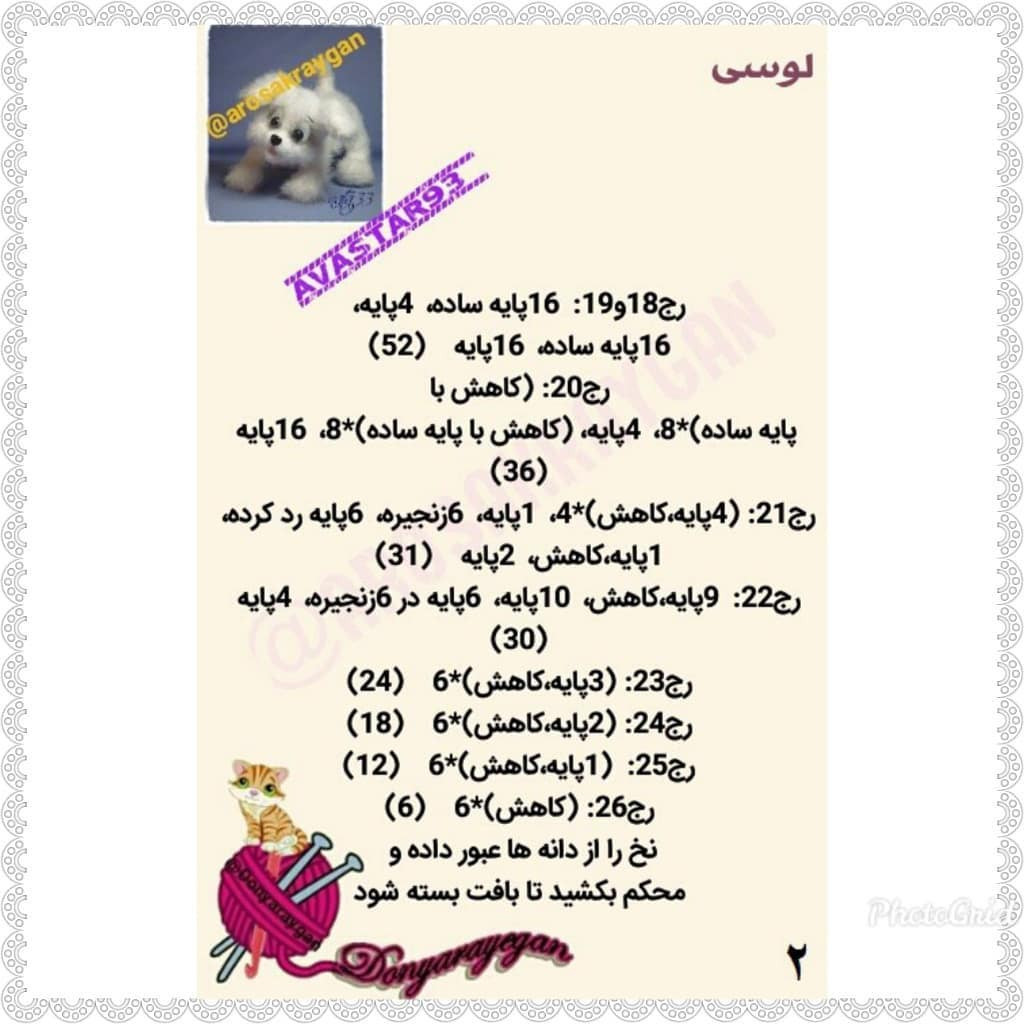 لوسی
@arosakraygan
AVASTAR93
رج18و19: 16پایه ساده، 4پایه،
16پایه ساده، 16پایه (52)
رج20: (کاهش با
پایه ساده)*8، 4پایه، (کاهش با پایه ساده)*8، 16پایه
(36)
رج21: (4پایه،کاهش)*4، 1پایه، 6زنجیره، 6پایه رد کرده،
1پایه،کاهش، 2پایه (31)
رج22: 9پایه،کاهش، 10پایه، 6پایه در 6زنجیره، 4پایه
(30)
رج23: (3پایه،کاهش)*6 (24)
رج24: (2پایه،کاهش)*6 (18)
رج25: (1پایه،کاهش)*6 (12)
رج26: (کاهش)*6 (6)
نخ را از دانه ها عبور داده و
محکم بکشید تا بافت بسته شود
@AROSAKRAYGAN
@Donyaraygan
Donyarayegan
PhotoGrid
۲